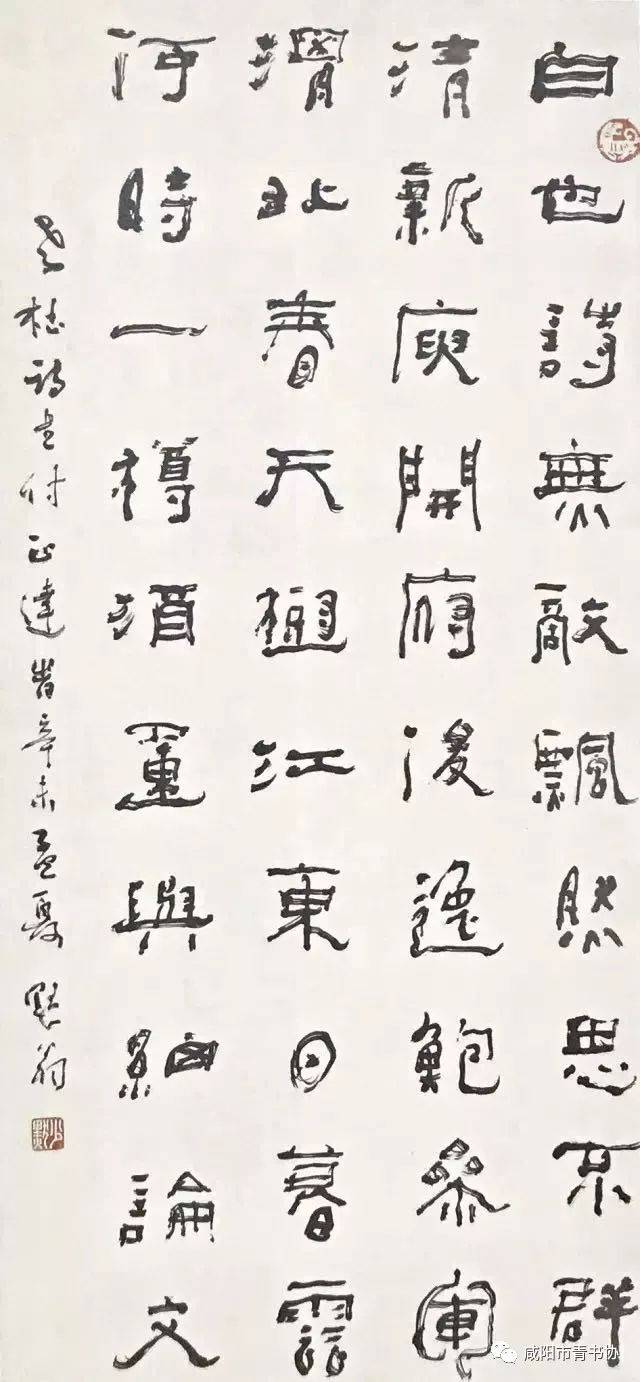 白也詩無敵飄然思不群
清新庾開府俊逸鮑參軍
渭北春天樹江東日暮雲
何時一樽酒重與細論文
老杜詩書付正達旹辛未孟夏 默翁
少默
咸阳市青书协